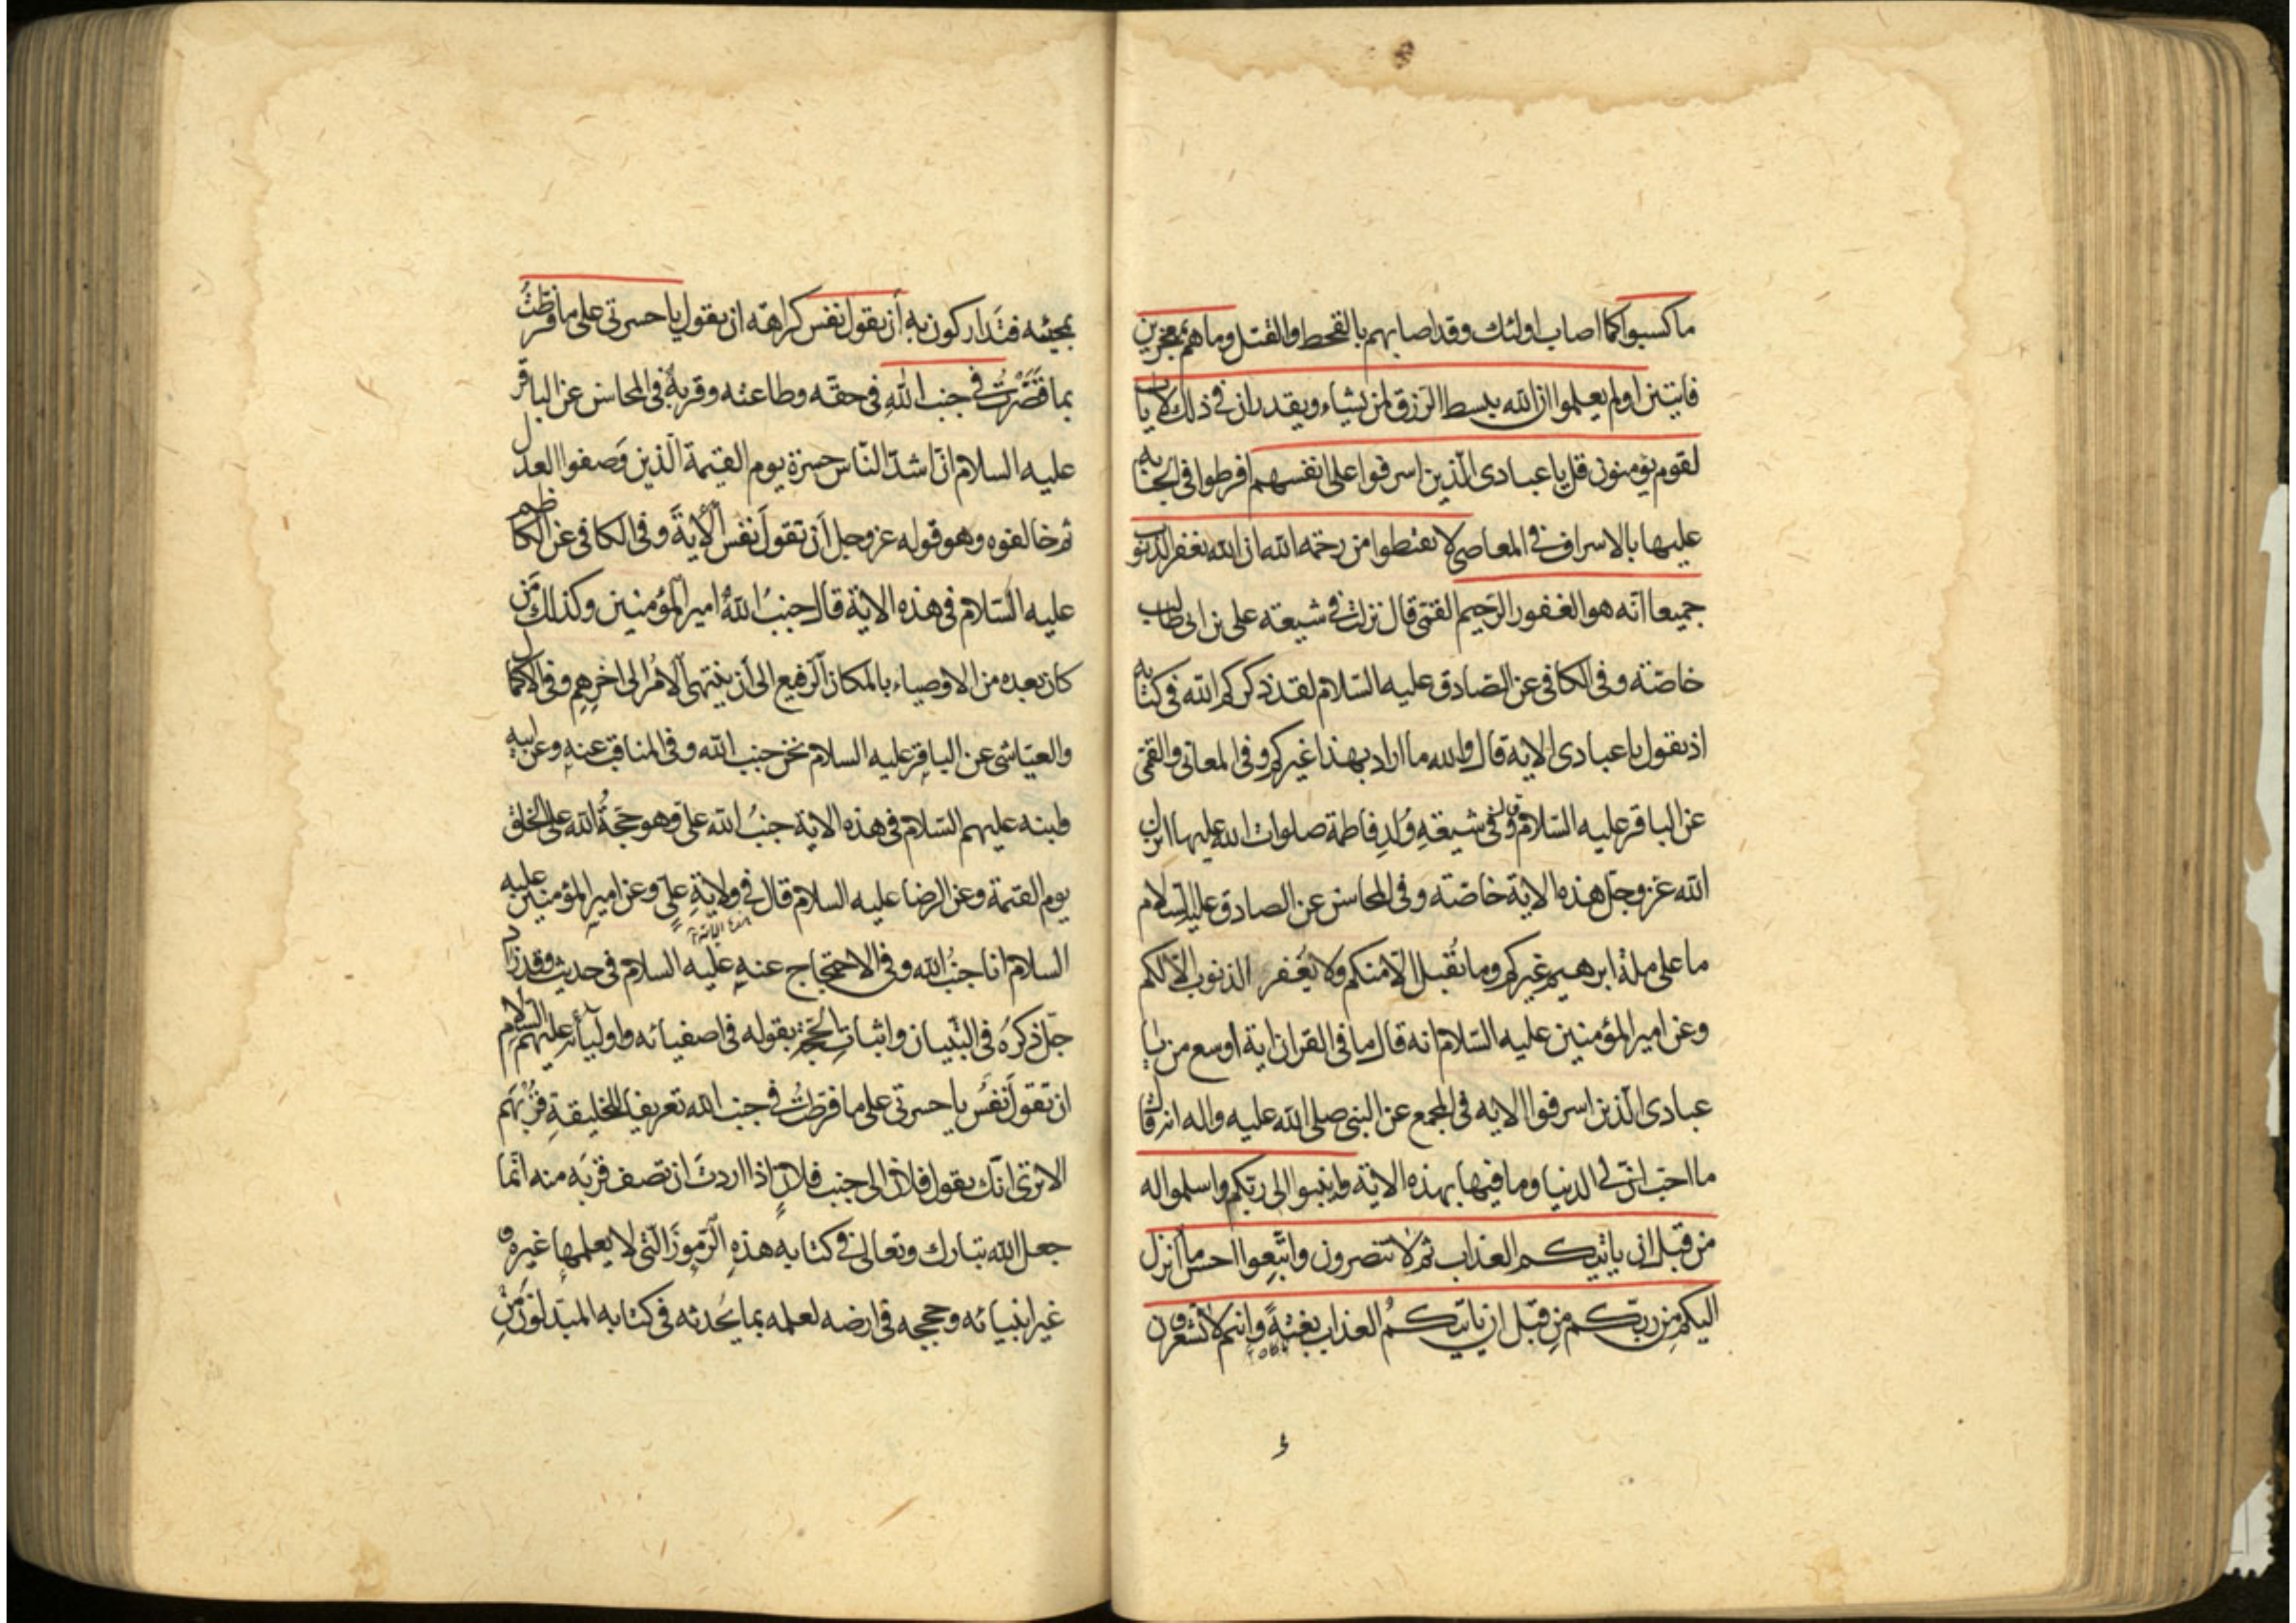 ما كسبوا كما اصاب اولئك وقد اصابهم بالقحط والقتل وما هم بمعجزين
فايتين اولم يعلموا ان الله يبسط الرزق لمن يشاء ويقدر ان في ذلك لايات
لقوم يؤمنون قل يا عبادى الذين اسرفوا على انفسهم افرطوا فى الجناية
عليها بالاسراف في المعاصى لا تقنطوا من رحمة الله ان الله يغفر الذنوب
جميعا انّه هو الغفور الرّحيم القمّى قال نزلت في شيعة على بن ابى طالب
خاصّة وفى الكافى عن الصّادق عليه السّلام لقد ذكركم الله فى كتابه
اذ يقول يا عبادى الاية قال والله ما اراد بهذا غيركم وفى المعانى والقمّى
عن الباقر عليه السّلام قال وفى شيعة وُلدِ فاطمة صلوات الله عليها انزل
الله عز وجل هذه الاية خاصّة وفى المحاسن عن الصادق عليه السلام
ما على ملة ابرهيم غيركم وما تُقبل الّا منكم ولا يُغفر الذنوب الّا لكم
وعن امير المؤمنين عليه السّلام انه قال ما فى القران اية اوسع من يا
عبادى الّذين اسرفوا الاية فى المجمع عن النبى صلى الله عليه واله انه قال
ما احبّ انّ لى الدنيا وما فيها بهذه الاية وانيبوا الى ربّكم واسلموا له
من قبل ان ياتيكم العذاب ثم لا تنصرون واتّبعوا احسن ما انزل
اليكم من ربّكم من قبل ان ياتيكم العذاب بغتةً وانتم لا تشعرون
بمجيئه فتَدَاركون به أن يقول نفس كراهة ان يقول يا حسرتى على ما فرّطتُ
بما قَصَّرتُ في جنب اللهِ فى حقّه وطاعته وقربه فى المحاسن عن الباقر
عليه السلام انّ اشدّ النّاس حسرة يوم القيمة الّذين وَصفوا العدل
ثم خالفوه وهو قوله عز وجل أن تقولَ نفس الأيةَ وفى الكافى عن الكاظم
عليه السّلام فى هذه الاية قال جنبُ اللهُ امير المؤمنين وكذلك مَن
كان بعده من الاوصياء بالمكان الرفيع الى أن ينتهى الامُر الى اخرِهِم وفى الاكمال
والعيّاشى عن الباقر عليه السلام نحن جنب الله وفى المناقب عنه وعن ابيه
وابنه عليهم السّلام فى هذه الاية جنبُ الله علىّ وهو حجّةُ الله على الخلق
يوم القيمة وعن الرضا عليه السلام قال في ولايةِ علىٍّ وعن اميرِ المؤمنين عليه
السلام انا جنبُ الله وفى الاحتجاج عنهِ عليه السلام فى حديث وقد زاد
جلّ ذكرُه فى التّبيان واثبات الحجّة بقوله فى اصفيائه واوليائه عليهم السّلام
ان تقولَ نفسُ يا حسرتى على ما فرّطتُ فى جنب الله تعريفا للخليقةِ قربهم
الا ترى انّك يقول فلان الى جنب فلانٍ اذا اردتَ ان تصف قربَه منه انّما
جعل الله تبارك وتعالى في كتابه هذهِ الرّموزَ الّتى لا يعلمها غيره و
غير انبيائه وحججه فى ارضه لعلمه بما يُحدثه فى كتابه المبدّلون مِن